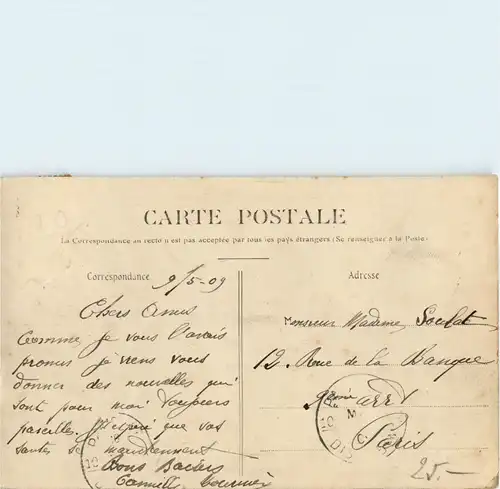 CARTE POSTALE
La Correspondance au recto n'est pas acceptée par tous les pays étrangers (Se renseigner à la Poste)
Correspondance
9/5-09
Chers Amis
Comme je vous l'avais
promis je viens vous
donner des nouvelles qui
sont pour moi toujours
pareilles. J'espère que vos
santés se maintiennent
Bons Baisers
Camille
Adresse
Monsieur Madame Soulat
12, Rue de la Banque
2ème arrt
Paris
25.-